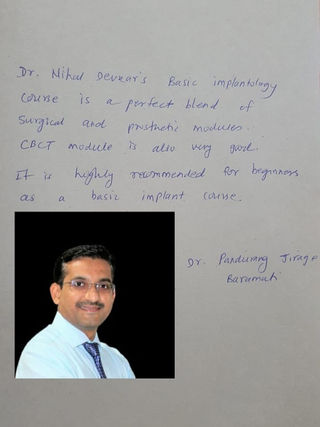 Dr. Nihal Devkar's Basic implantology
course is a perfect blend of
surgical and prosthetic modules.
CBCT module is also very good.
It is highly recommended for beginners
as a basic implant course.
Dr. Pandurang Jirage
Baramati